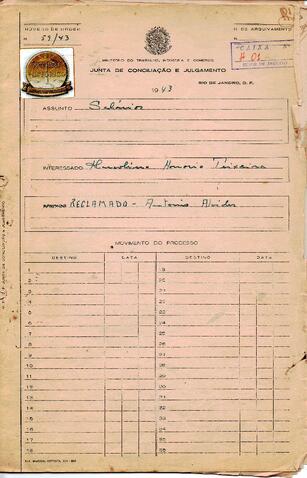 NUMERO DE ORDEM
N. 59/43
N. DE ARQUIVAMENTO
CAIXA
# 01
MINISTERIO DO TRABALHO, INDUSTRIA E COMERCIO
JUNTA DE CONCILIAÇÃO E JULGAMENTO
RIO DE JANEIRO, D. F.
1943
ASSUNTO Salários
INTERESSADO Honorio Teixeira
RECLAMADO - Antonio
MOVIMENTO DO PROCESSO
DESTINO DATA DESTINO DATA
1 19
2 20
3 21
4 22
5 23
6 24
7 25
8 26
9 27
10 28
11 29
12 30
13 31
14 32
15 33
16 34
17 35
18 36